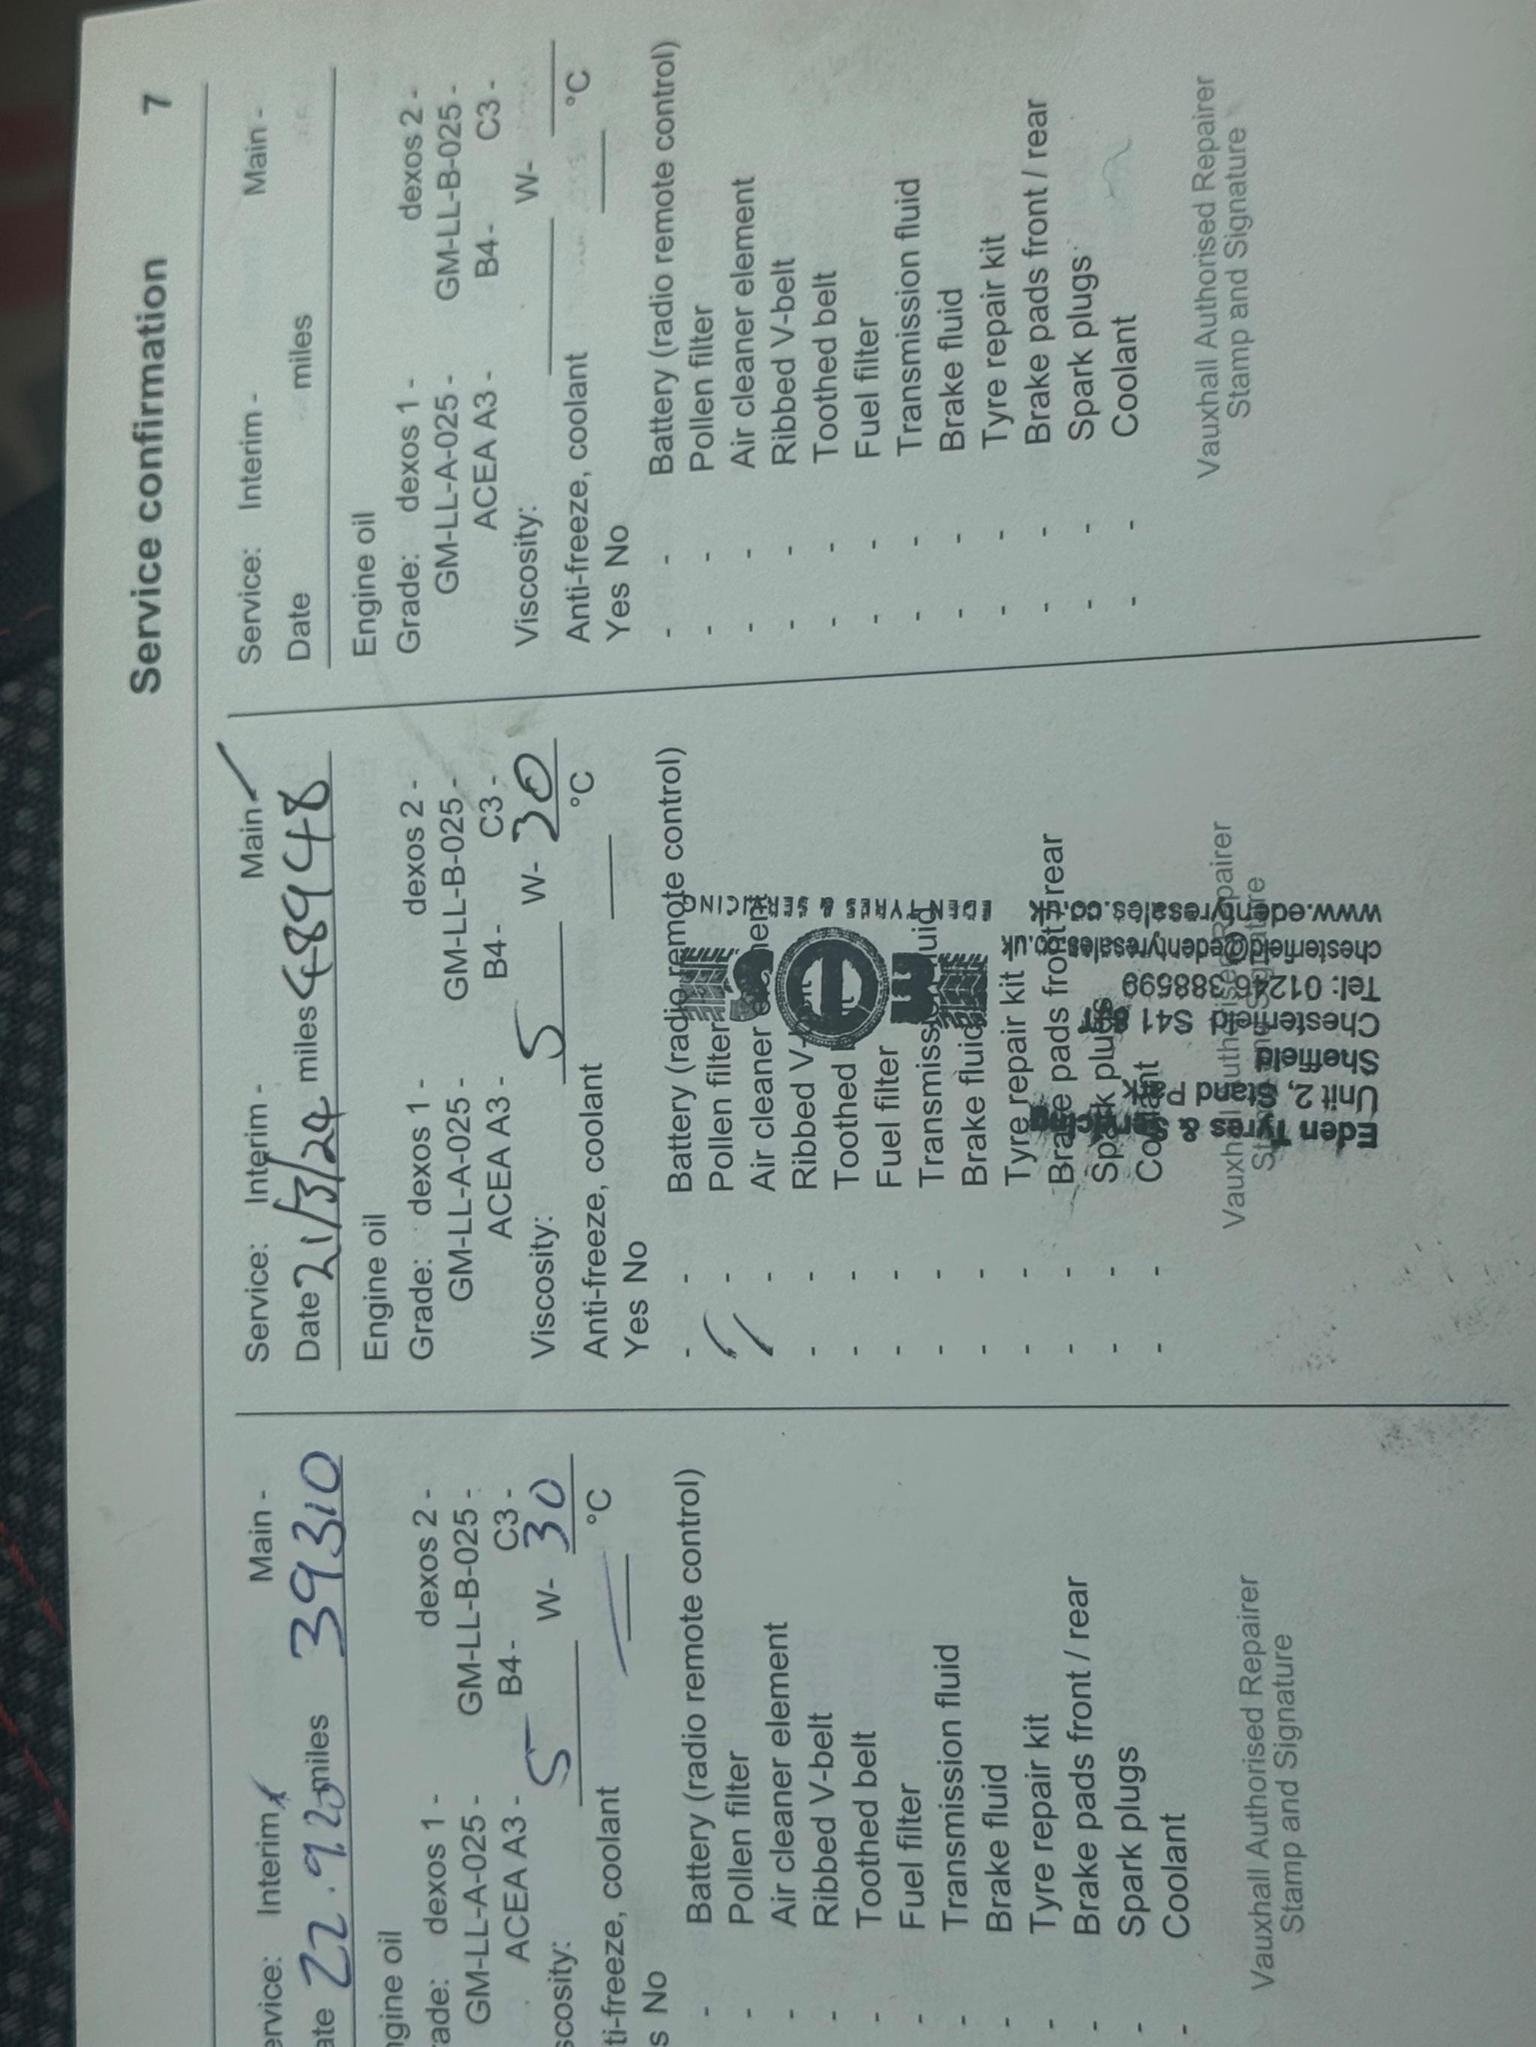 Service confirmation 7
ervice: Interim Main -
ate 22.9.20 miles 39310
ngine oil
rade: dexos 1 - dexos 2 -
GM-LL-A-025 - GM-LL-B-025 -
ACEA A3 - B4 - C3 -
scosity: 5 W- 30
ti-freeze, coolant °C
s No
- Battery (radio remote control)
- Pollen filter
- Air cleaner element
- Ribbed V-belt
- Toothed belt
- Fuel filter
- Transmission fluid
- Brake fluid
- Tyre repair kit
- Brake pads front / rear
- Spark plugs
- Coolant
Vauxhall Authorised Repairer
Stamp and Signature
Service: Interim - Main
Date 21/3/24 miles 48948
Engine oil
Grade: dexos 1 - dexos 2 -
GM-LL-A-025 - GM-LL-B-025 -
ACEA A3 - B4 - C3 -
Viscosity: 5 W- 30
Anti-freeze, coolant °C
Yes No
- - Battery (radio remote control)
- Pollen filter
- Air cleaner element
- - Ribbed V-belt
- - Toothed
- - Fuel filter
- - Transmission fluid
- - Brake fluid
- - Tyre repair kit
- - Brake pads front / rear
- - Spark plugs
- - Coolant
Vauxhall Authorised Repairer
Stamp and Signature
EDEN TYRES & SERVICING
Eden Tyres & Servicing
Unit 2, Stand Park
Sheffield
Chesterfield S41 8JT
Tel: 01246 388599
chesterfield@edentyresales.co.uk
www.edentyresales.co.uk
Service: Interim - Main -
Date miles
Engine oil
Grade: dexos 1 - dexos 2 -
GM-LL-A-025 - GM-LL-B-025 -
ACEA A3 - B4 - C3 -
Viscosity: W-
Anti-freeze, coolant °C
Yes No
- - Battery (radio remote control)
- - Pollen filter
- - Air cleaner element
- - Ribbed V-belt
- - Toothed belt
- - Fuel filter
- - Transmission fluid
- - Brake fluid
- - Tyre repair kit
- - Brake pads front / rear
- - Spark plugs
- - Coolant
Vauxhall Authorised Repairer
Stamp and Signature